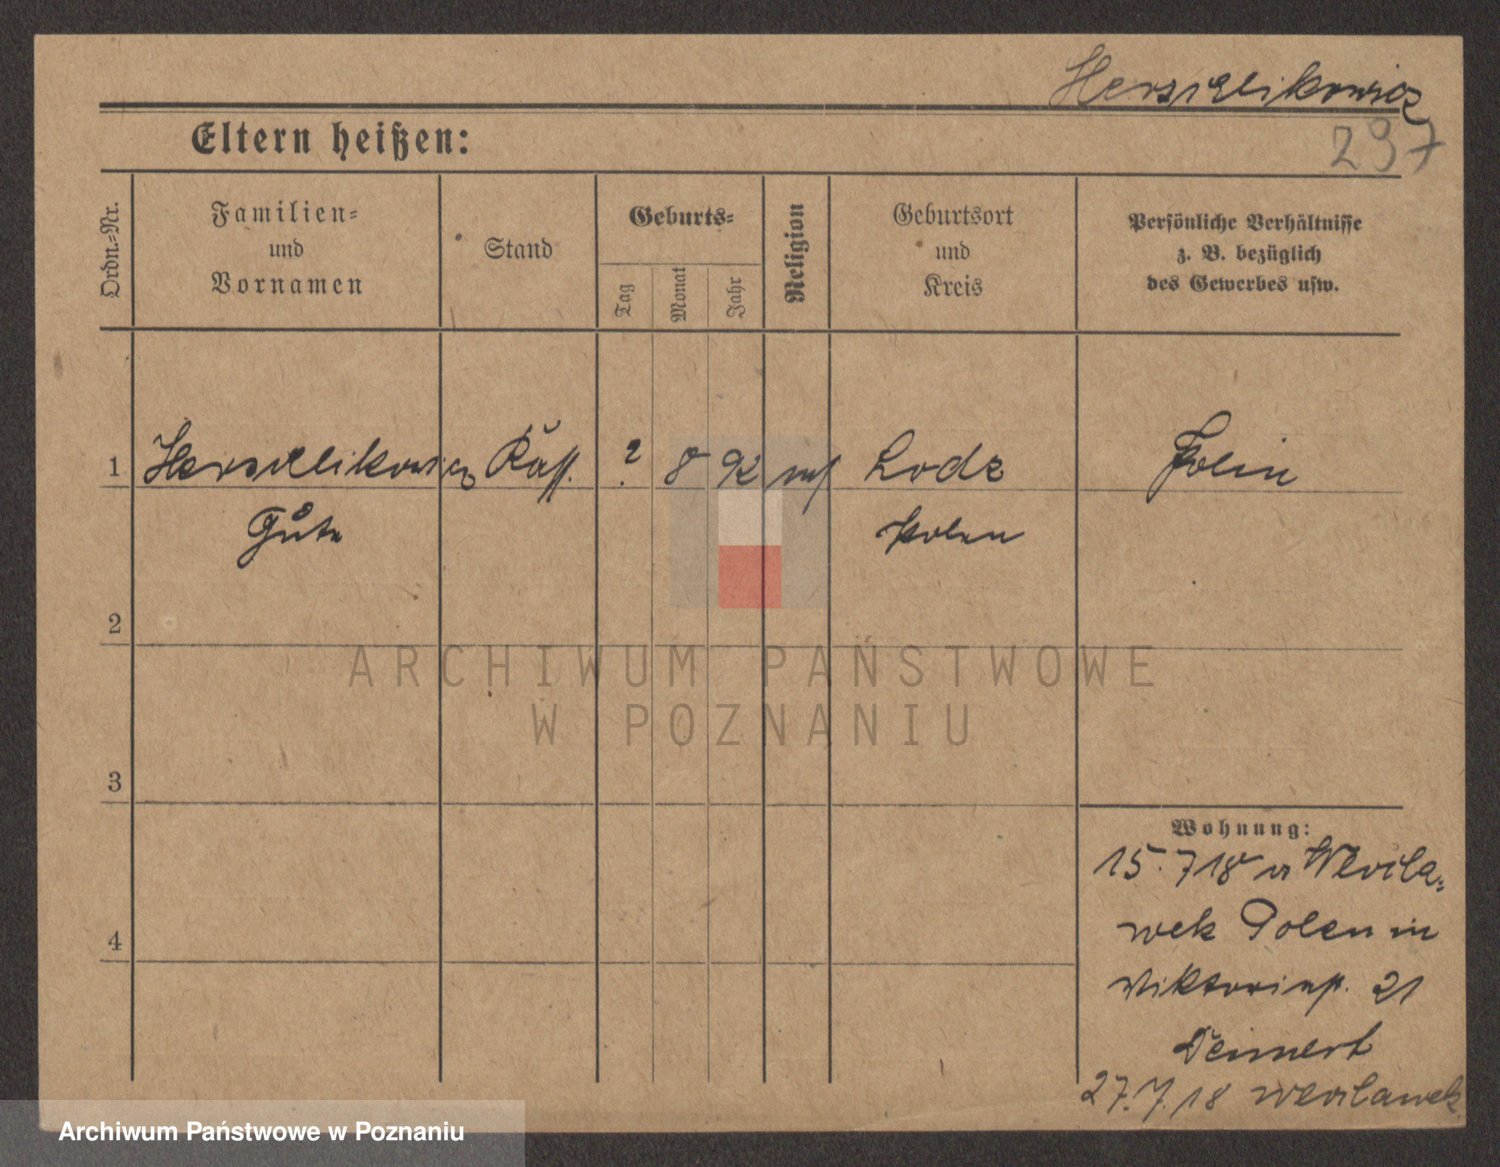 Herszlikowicz
Eltern heißen:
297
Ordn.-Nr.
Familien-
und
Vornamen
Stand
Geburts-
Tag
Monat
Jahr
Religion
Geburtsort
und
Kreis
Persönliche Verhältnisse
z. B. bezüglich
des Gewerbes usw.
1 Herszlikowicz ? 8 92 mos Lodz
Polen
2
3
4
Wohnung:
15. 7 18 v
Polen in
Viktoriastr. 21
27. 7. 18
ARCHIWUM PAŃSTWOWE
W POZNANIU
Archiwum Państwowe w Poznaniu